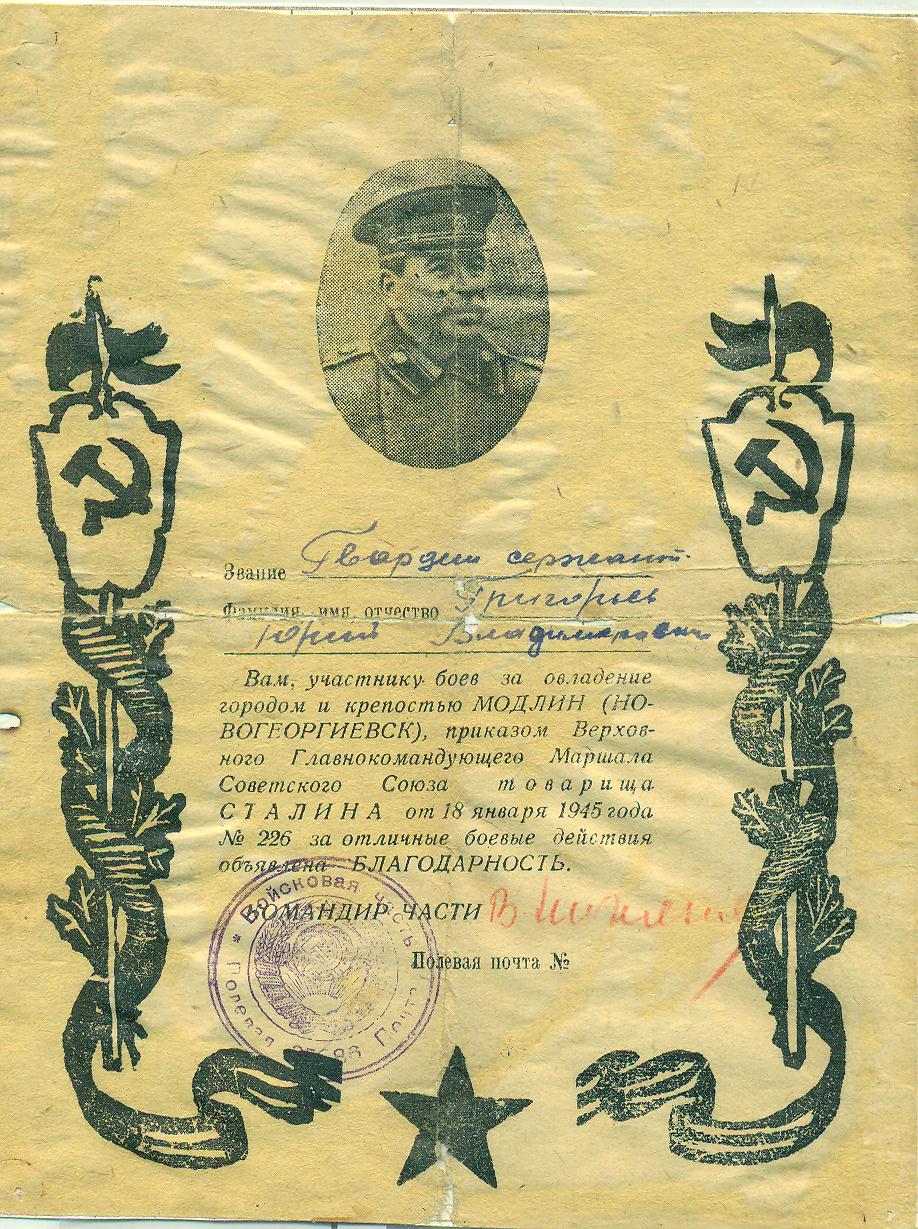 Звание Гвардии сержант
Фамилия, имя, отчество Григорьев
Юрий Владимирович
Вам, участнику боев за овладение
городом и крепостью МОДЛИН (НО-
ВОГЕОРГИЕВСК), приказом Верхов-
ного Главнокомандующего Маршала
Советского Союза товарища
СТАЛИНА от 18 января 1945 года
№ 226 за отличные боевые действия
объявлена БЛАГОДАРНОСТЬ.
КОМАНДИР ЧАСТИ
Полевая почта №
Войсковая часть
* Полевая Почта